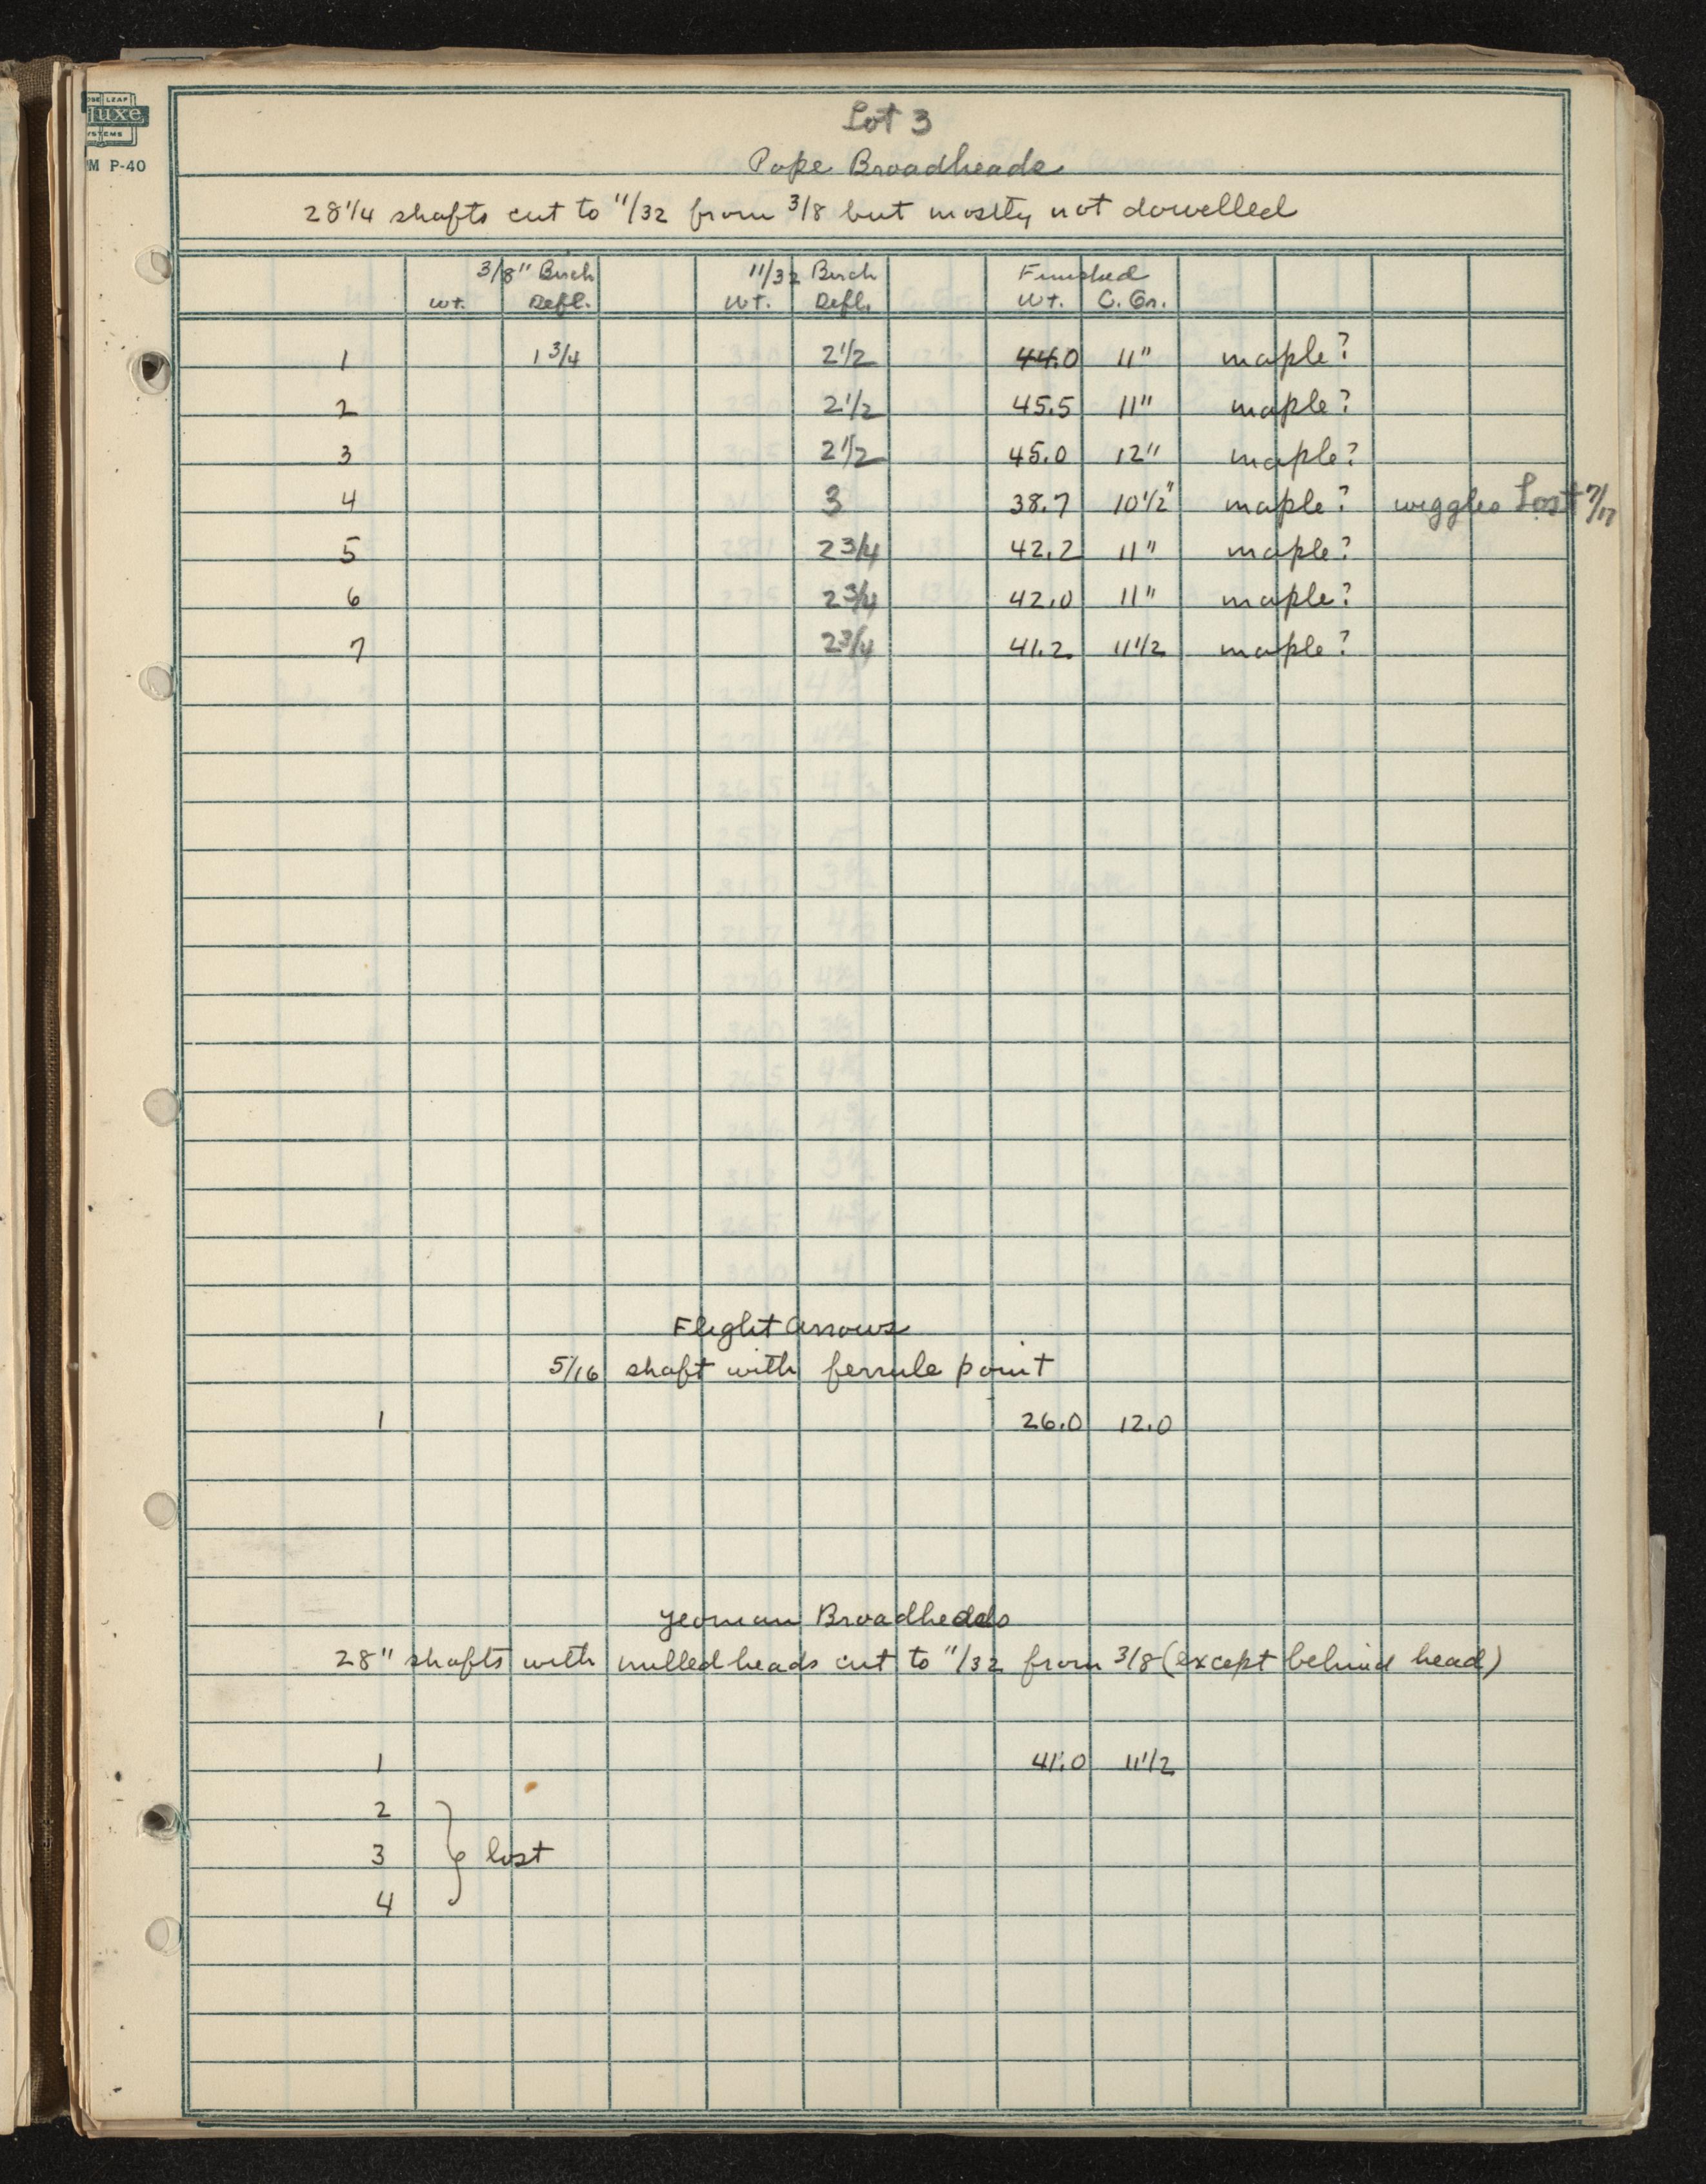 luxe
P-40
Lot 3
Pope Broadheads
28 1/4 shafts cut to 11/32 from 3/8 but mostly not dowelled
3/8" Birch 11/32 Birch Finished
Wt. Defl. Wt. Defl. Wt. C. Gr.
1 1 3/4 2 1/2 44.0 11" maple?
2 2 1/2 45.5 11" maple?
3 2 1/2 45.0 12" maple?
4 3 38.7 10 1/2" maple? wiggles Lost 7/17
5 2 3/4 42.2 11" maple?
6 2 3/4 42.0 11" maple?
7 2 3/4 41.2 11 1/2 maple?
Flight Arrows
5/16 shaft with ferrule point
1 26.0 12.0
Yeoman Broadheads
28" shafts with milled heads cut to 11/32 from 3/8 (except behind head)
1 41.0 11 1/2
2
3 lost
4